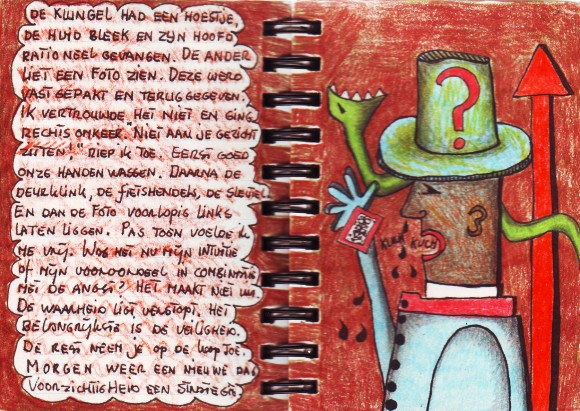 DE KLUNGEL HAD EEN HOESTJE,
DE HUID BLEEK EN ZIJN HOOFD
RATIONEEL GEVANGEN. DE ANDER
LIET EEN FOTO ZIEN. DEZE WERD
VAST GEPAKT EN TERUG GEGEVEN.
IK VERTROUWDE HET NIET EN GING
RECHTS OMKEER. "NIET AAN JE GEZICHT
ZITTEN!" RIEP IK TOE. EERST GOED
ONZE HANDEN WASSEN. DAARNA DE
DEURKLINK, DE FIETSHENDELS, DE SLEUTEL
EN DAN DE FOTO VOORLOPIG LINKS
LATEN LIGGEN. PAS TOEN VOELDE IK
ME VRIJ. WAS HET NU MIJN INTUITIE
OF MIJN VOOROORDEEL IN COMBINATIE
MET DE ANGST? HET MAAKT NIET UIT.
DE WAARHEID LIGT VERSTOPT. HET
BELANGRIJKSTE IS DE VEILIGHEID.
DE REST NEEM JE OP DE KOOP TOE.
MORGEN WEER EEN NIEUWE DAG
VOORZICHTIGHEID EEN STRATEGIE
?
3
KUCH KUCH